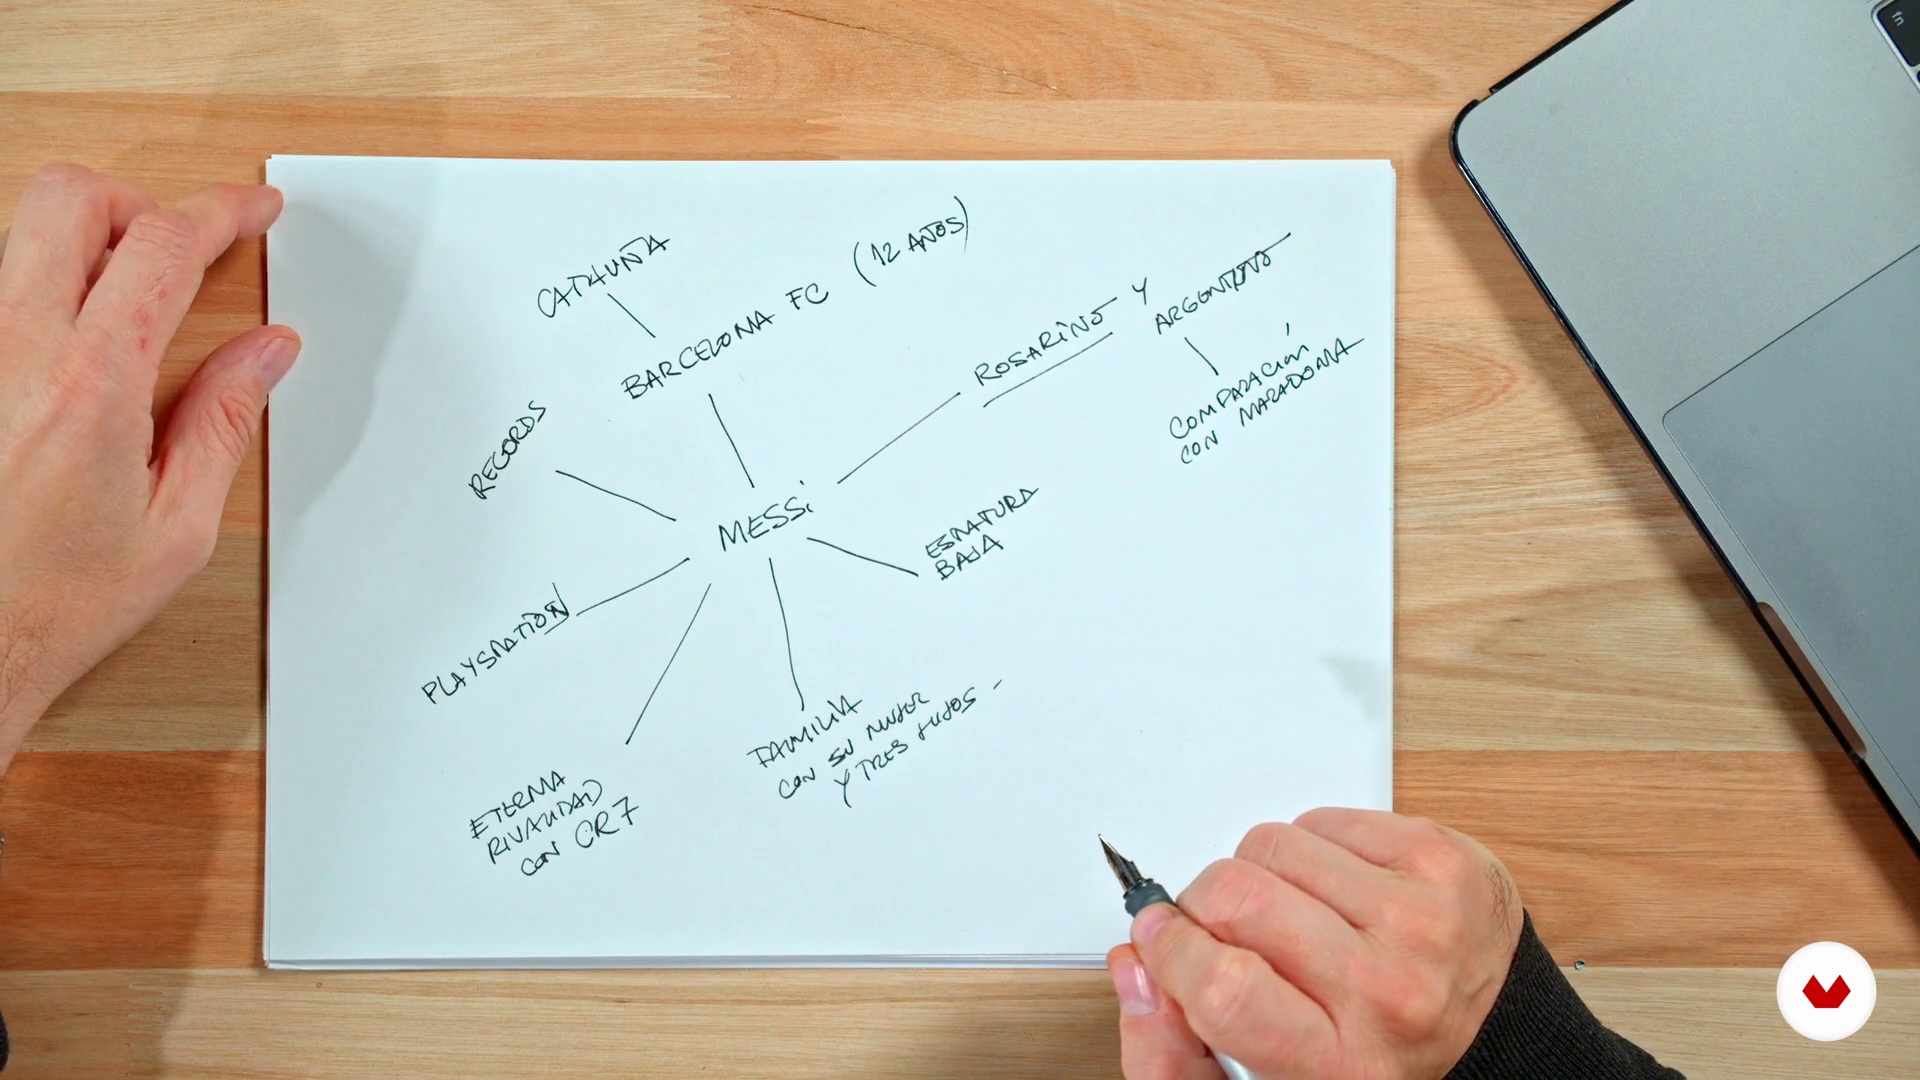 CATALUÑA
BARCELONA FC (12 AÑOS)
ROSARINO Y
ARGENTINO
COMPARACIÓN
CON MARADONA
RECORDS
MESSi
ESTATURA
BAJA
PLAYSTATION
FAMILIA
CON SU MUJER
Y TRES HIJOS
ETERNA
RIVALIDAD
CON CR7